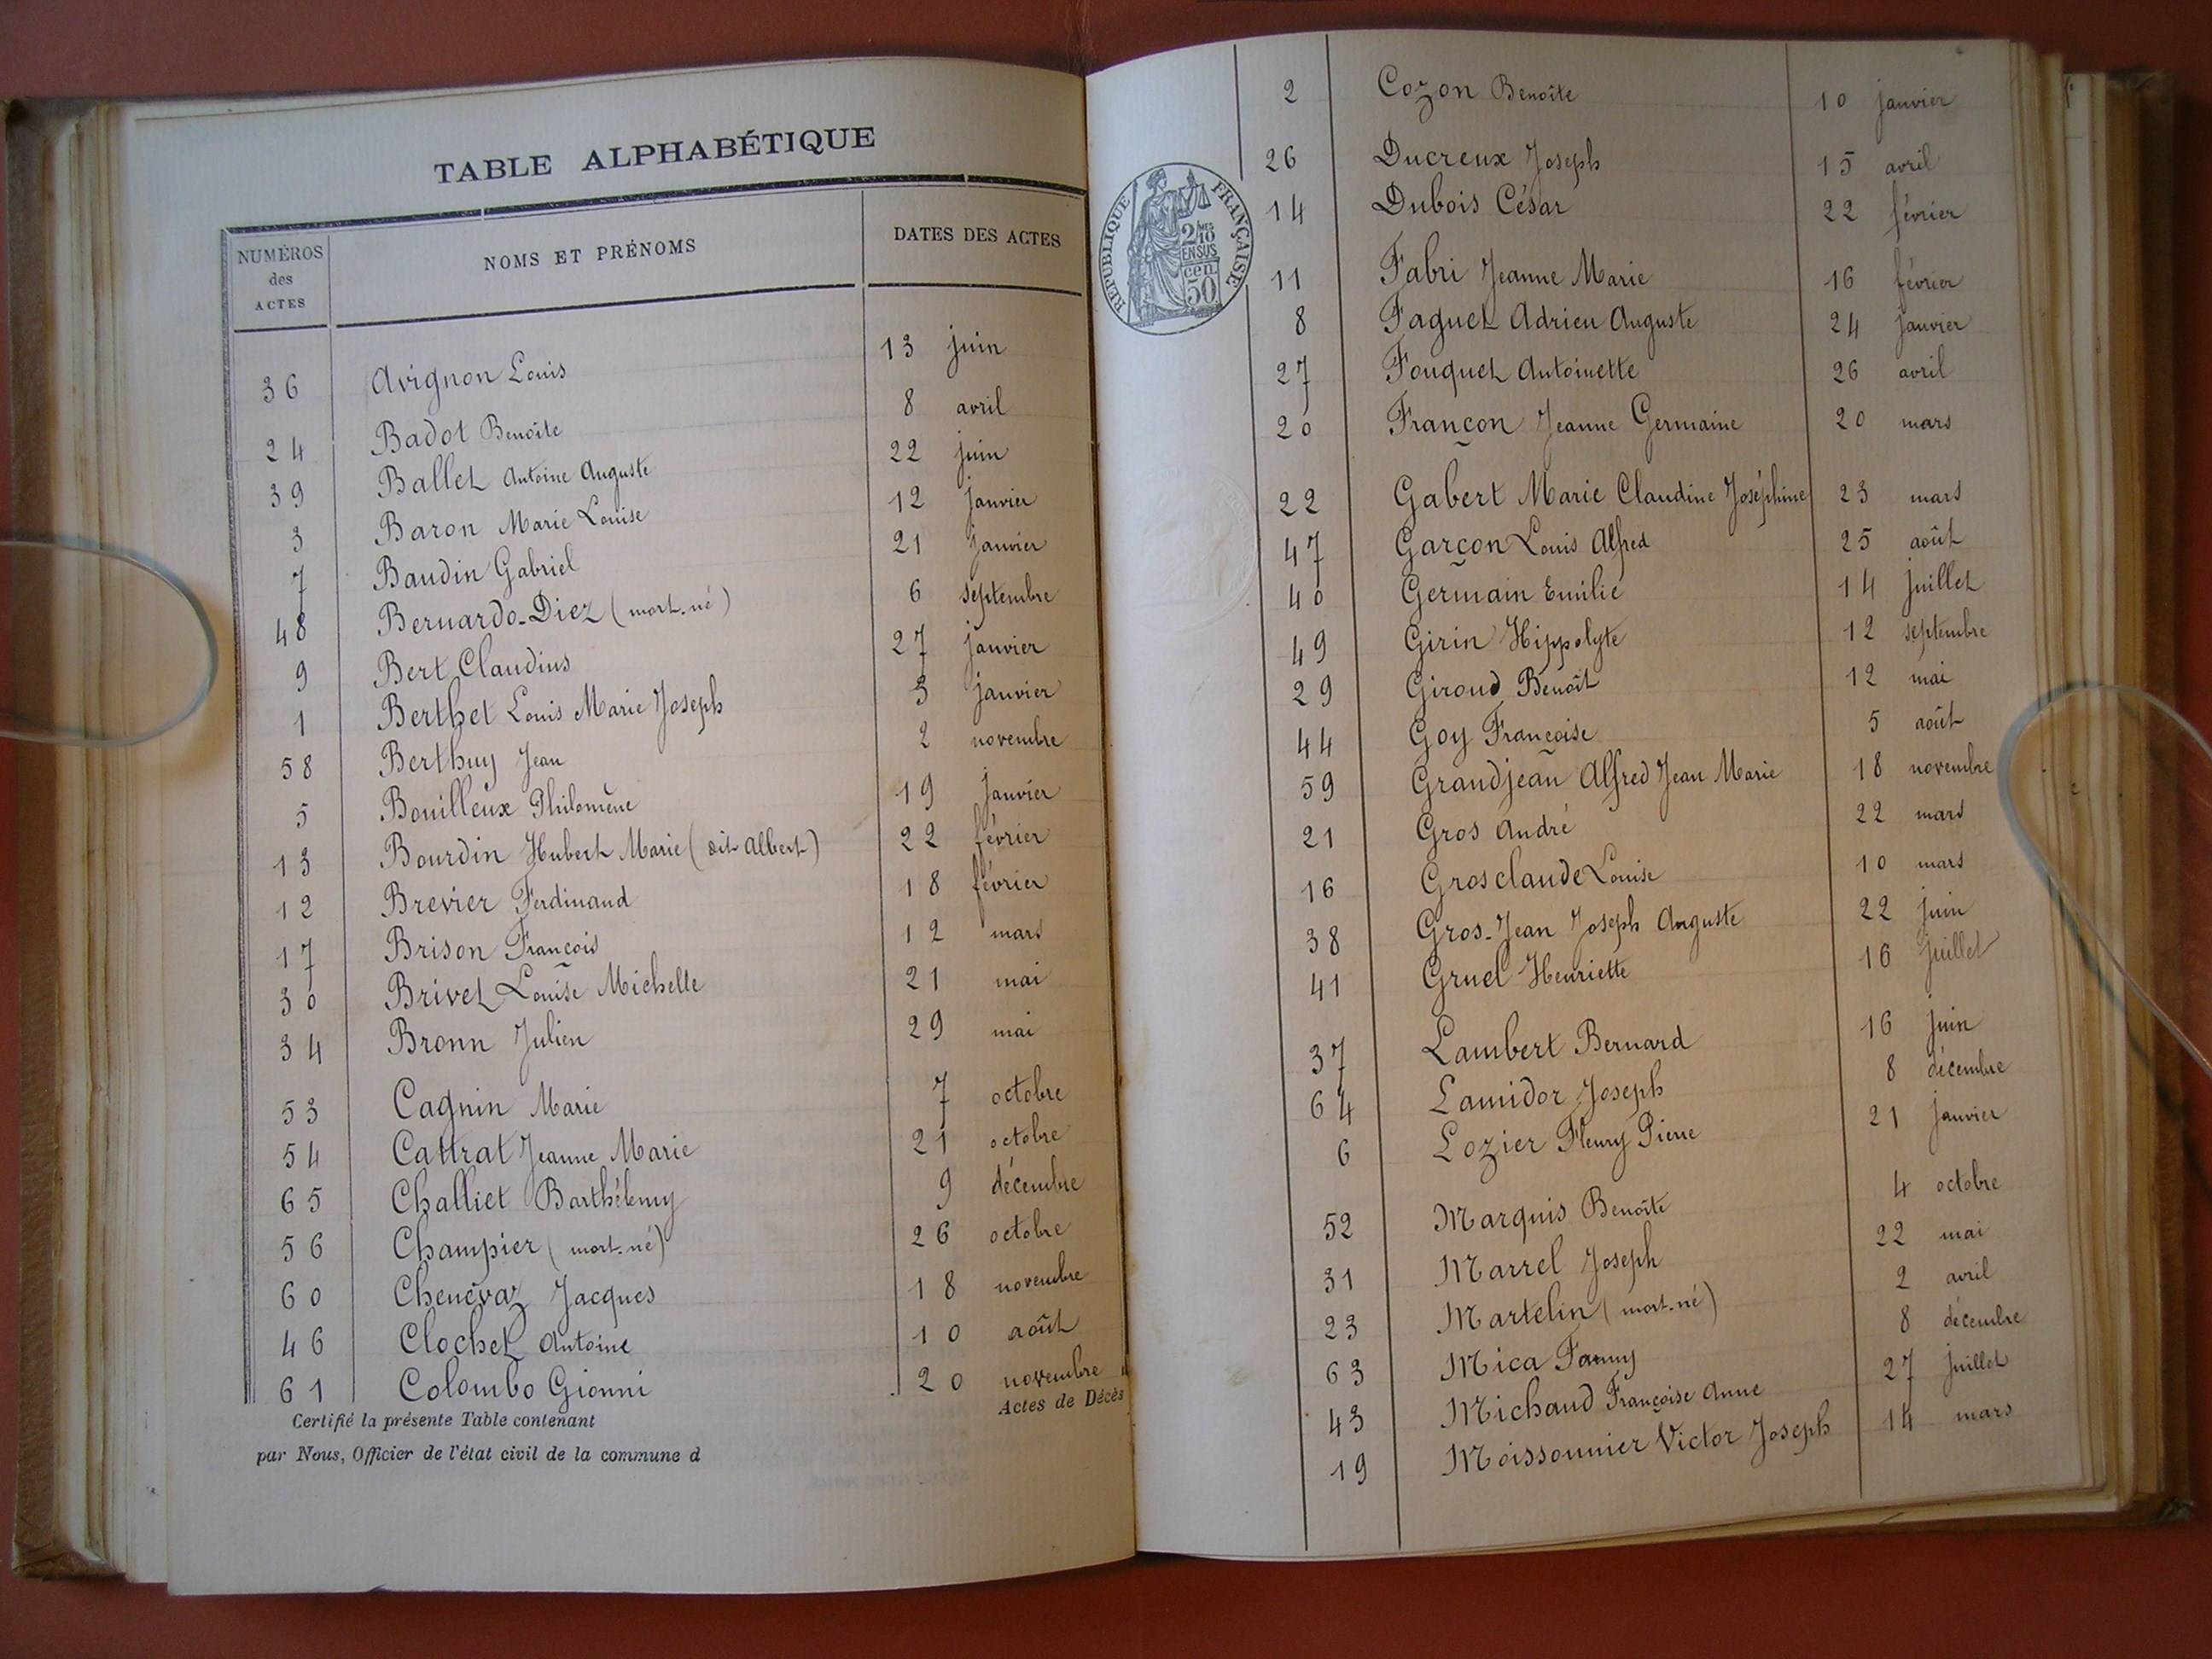 TABLE ALPHABÉTIQUE
NUMÉROS des ACTES NOMS ET PRÉNOMS DATES DES ACTES
36 Avignon Louis 13 juin
24 Badot Benoîte 8 avril
39 Ballet Antoine Auguste 22 juin
3 Baron Marie Louise 12 janvier
7 Baudin Gabriel 21 janvier
48 Bernardo-Diez (mort-né) 6 septembre
9 Bert Claudius 27 janvier
1 Berthet Louis Marie Joseph 3 janvier
58 Berthuy Jean 2 novembre
5 Bouilleux Philomène 19 janvier
13 Bourdin Hubert Marie (dit Albert) 22 février
12 Brevier Ferdinand 18 février
17 Brison François 12 mars
30 Brivet Louise Michelle 21 mai
34 Bronn Julien 29 mai
53 Cagnin Marie 7 octobre
54 Cattrat Jeanne Marie 21 octobre
65 Challiet Barthélemy 9 décembre
56 Champier (mort-né) 26 octobre
60 Chenevaz Jacques 18 novembre
46 Clochet Antoine 10 août
61 Colombo Gionni 20 novembre
Certifié la présente Table contenant Actes de Décès
par Nous, Officier de l'état civil de la commune d
2 Cozon Benoîte 10 janvier
26 Ducreux Joseph 15 avril
14 Dubois César 22 février
RÉPUBLIQUE FRANÇAISE
2/10MES
EN SUS
50 cen.
11 Fabri Jeanne Marie 16 février
8 Faguet Adrien Auguste 24 janvier
27 Fouquet Antoinette 26 avril
20 Françon Jeanne Germaine 20 mars
22 Gabert Marie Claudine Joséphine 23 mars
47 Garçon Louis Alfred 25 août
40 Germain Emilie 14 juillet
49 Girin Hippolyte 12 septembre
29 Giroud Benoît 12 mai
44 Goy Françoise 5 août
59 Grandjean Alfred Jean Marie 18 novembre
21 Gros André 22 mars
16 Grosclaude Louise 10 mars
38 Gros-Jean Joseph Auguste 22 juin
41 Gruel Henriette 16 juillet
37 Lambert Bernard 16 juin
64 Lamidor Joseph 8 décembre
6 Lozier Fleury Pierre 21 janvier
52 Marquis Benoîte 4 octobre
31 Marrel Joseph 22 mai
23 Martelin (mort-né) 2 avril
63 Mica Fanny 8 décembre
43 Michaud Françoise Anne 27 juillet
19 Moissonnier Victor Joseph 14 mars